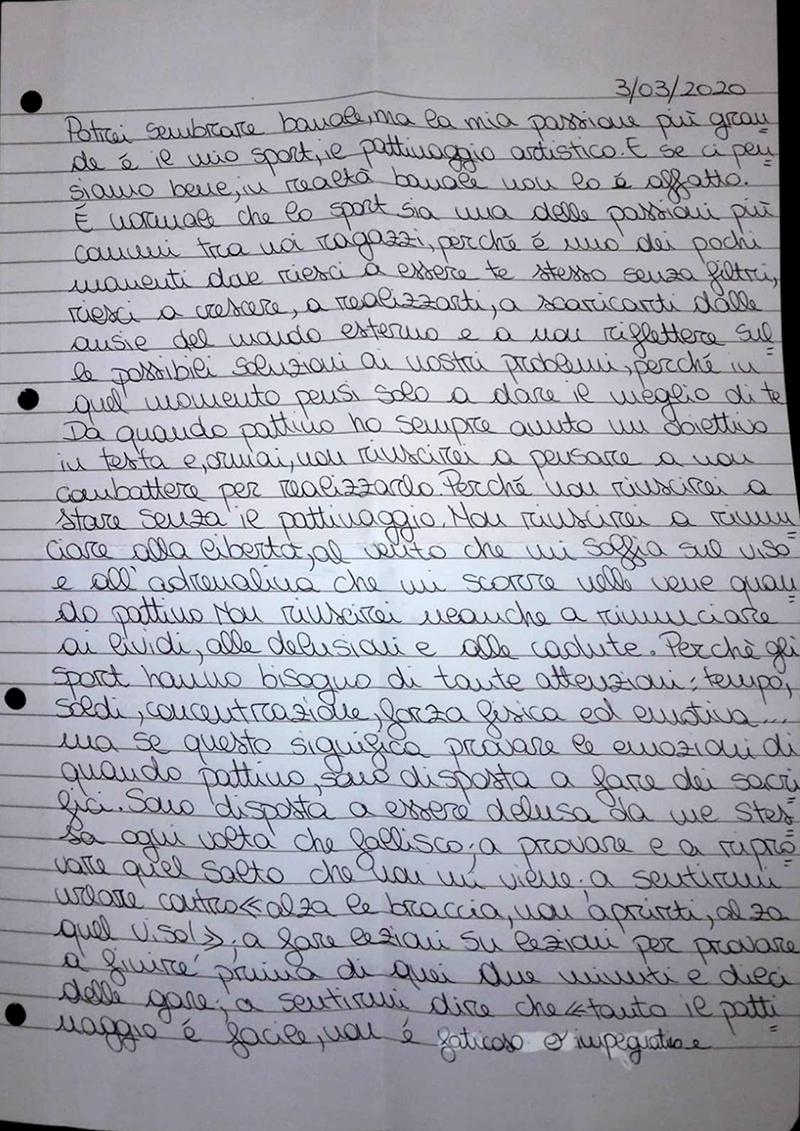 3/03/2020
Potrei sembrare banale, ma la mia passione più gran=
de é il mio sport, il pattinaggio artistico. E se ci pen=
siamo bene, in realtà banale non lo é affatto.
É normale che lo sport sia una delle passioni più
comuni tra noi ragazzi, perché é uno dei pochi
momenti dove riesci a essere te stesso senza filtri,
riesci a crescere, a realizzarti, a scaricarti dalle
ansie del mondo esterno e a non riflettere sul=
le possibili soluzioni ai nostri problemi, perché in
quel momento pensi solo a dare il meglio di te
Da quando pattino ho sempre avuto un obiettivo
in testa e, ormai, non riuscirei a pensare a non
combattere per realizzarlo. Perché non riuscirei a
stare senza il pattinaggio. Non riuscirei a rinun=
ciare alla libertà, al vento che mi soffia sul viso
e all'adrenalina che mi scorre nelle vene quan=
do pattino Non riuscirei neanche a rinunciare
ai lividi, alle delusioni e alle cadute. Perchè gli
sport hanno bisogno di tante attenzioni: tempo,
soldi, concentrazione, forza fisica ed emotiva...
ma se questo significa provare le emozioni di
quando pattino, sono disposta a fare dei sacri
fici. Sono disposta a essere delusa da me stes=
sa ogni volta che fallisco; a provare e a ripro=
vare quel salto che non mi viene; a sentirmi
urlare contro «alza le braccia, non aprirti, alza
quel viso!»; a fare lezioni su lezioni per provare
a finire prima di quei due minuti e dieci
delle gare; a sentirmi dire che «tanto il patti=
naggio é facile, non é faticoso o impegnativo e